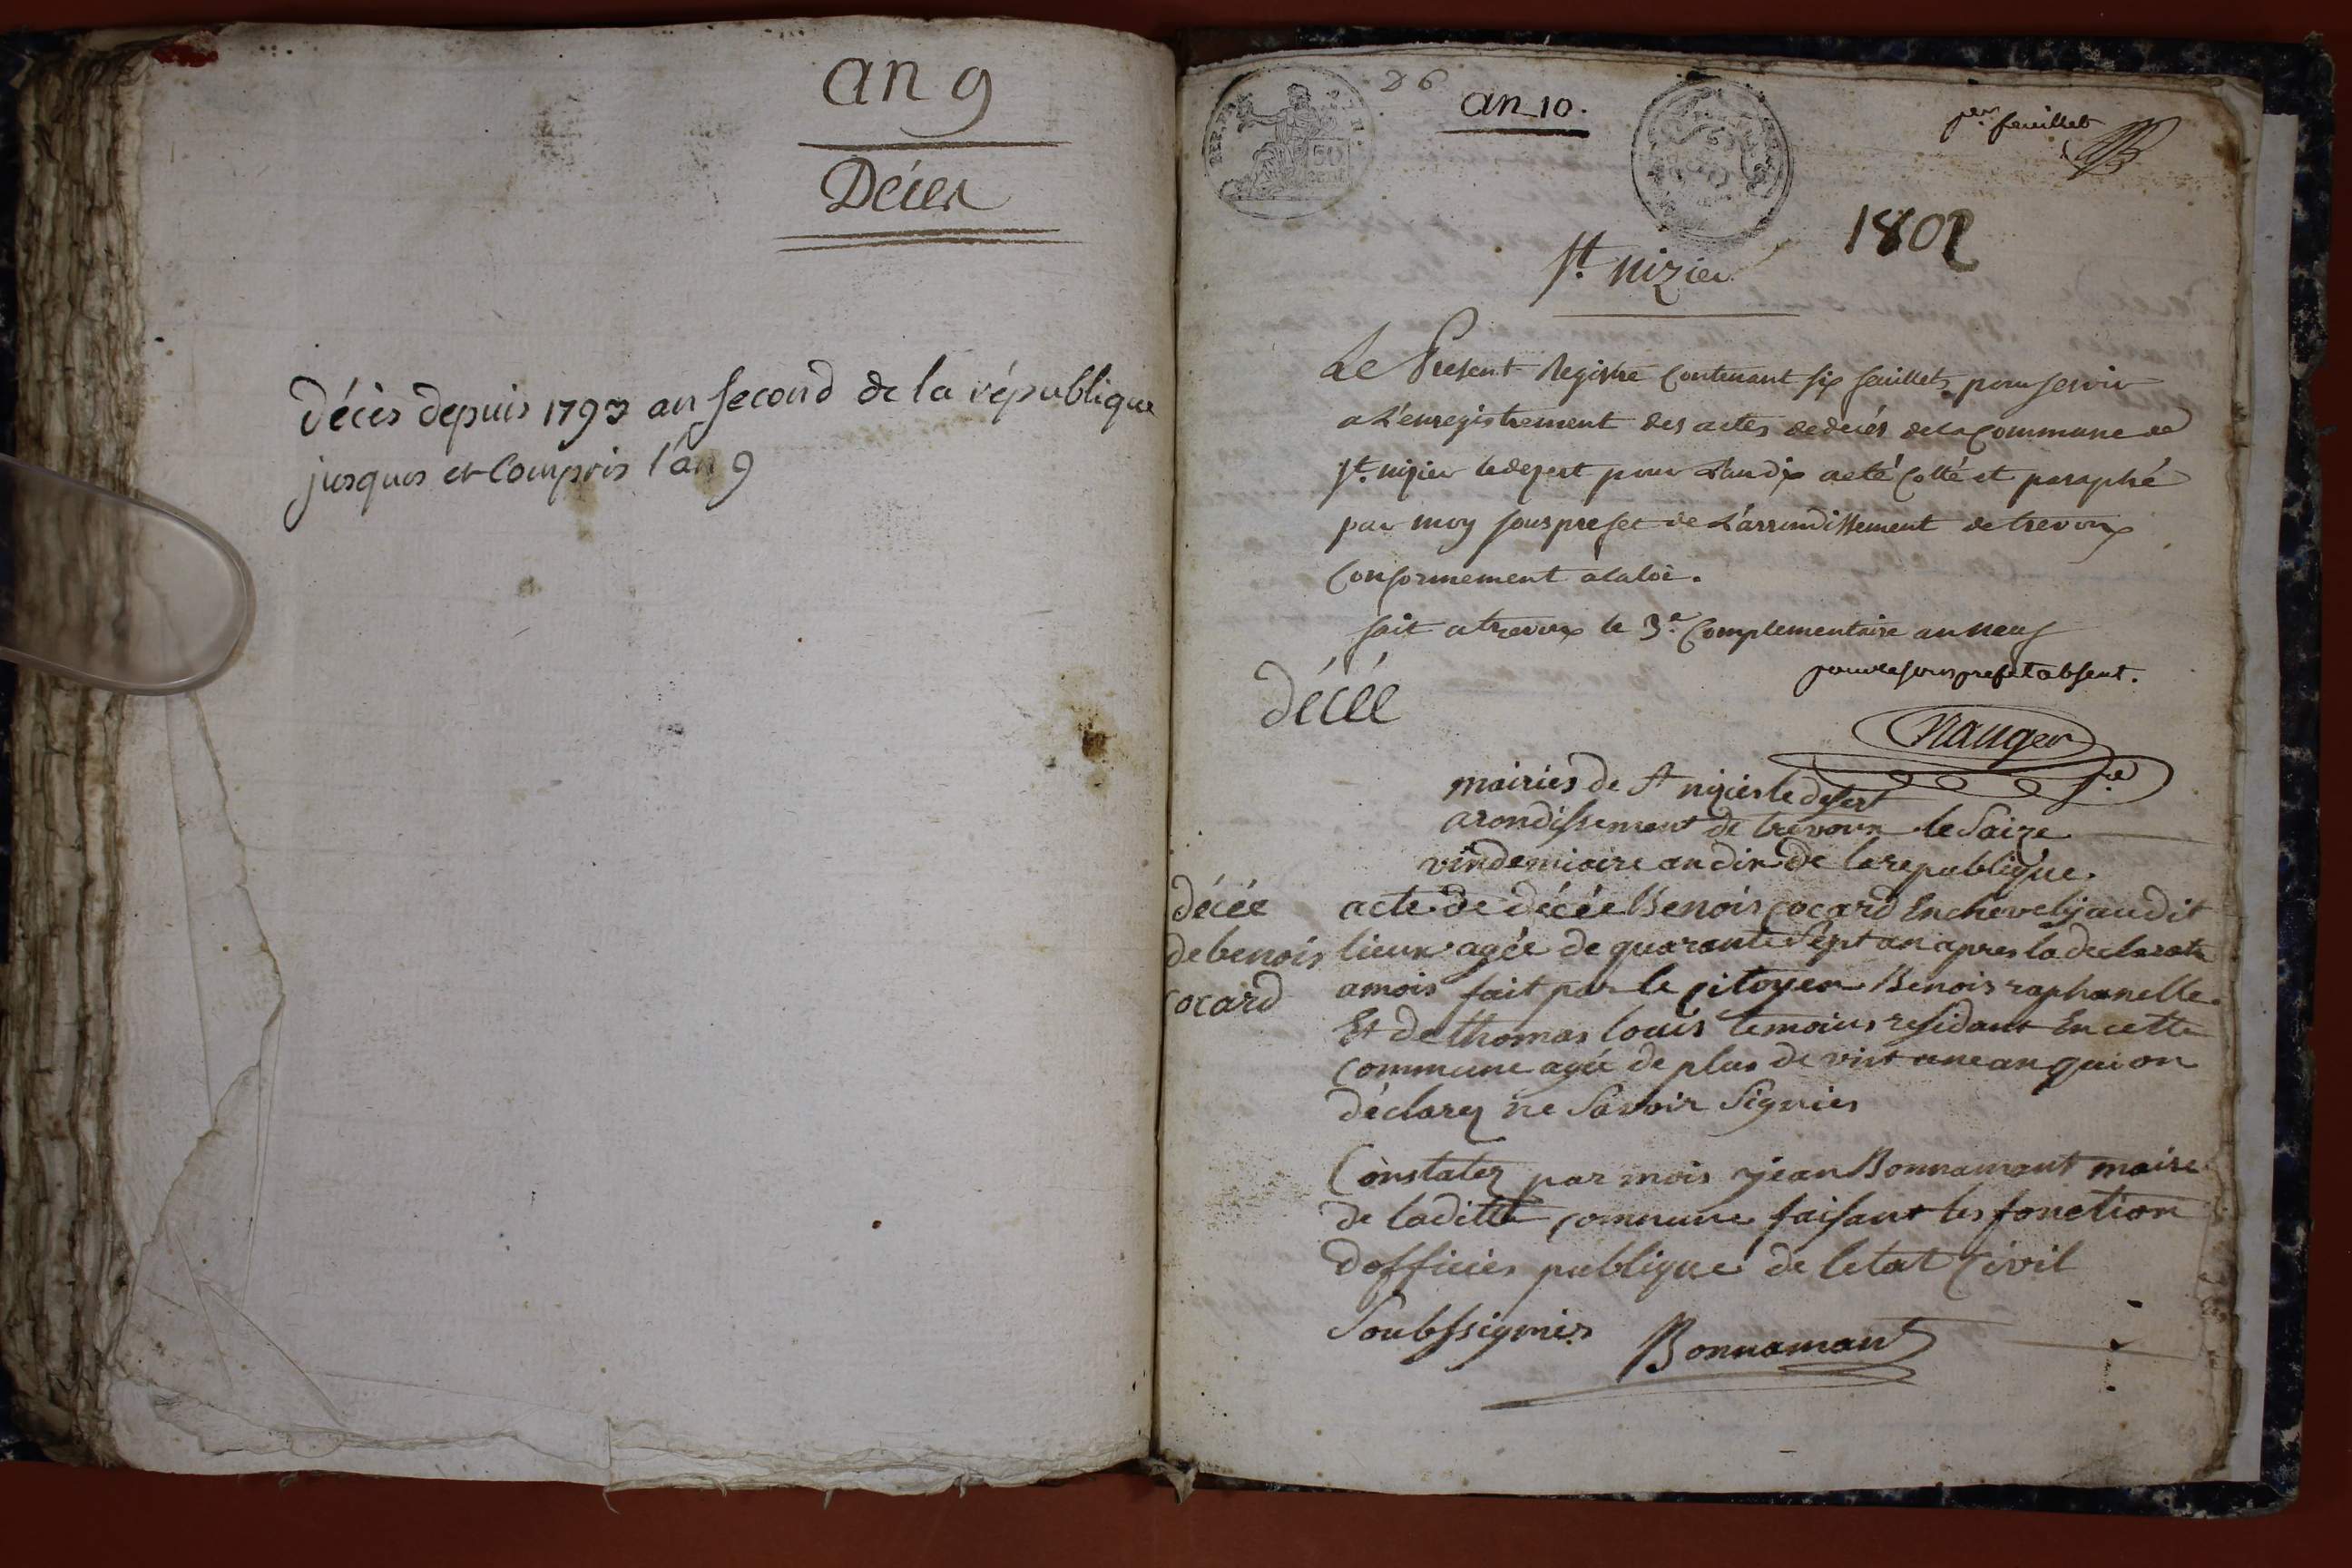 an 9
Décés
décès depuis 1793 an second de la république
jusques et compris l'an 9
D 6
an 10.
1er feuillet
REP. FRA
50
cent
1802
St. nizier
Le Present Registre Contenant six feuillets pour servir
a L'enregistrement des actes dedecés dela Commune de
St. nizier ledezert pour L'an dix aeté Cotté et paraphé
par moy sousprefet de L'arrondissement de trevoux
Conformement alaloi.
fait atrevoux le 3e. Complementaire an neuf
pour le sousprefet absent.
Nauger
décéé
mairies de St nizies le desert
arondissement de trevoux le Saize
vindemiaire an dix de la republique.
décée
debenois
cocard
acte de décée Benois cocard En audit
lieux agée de quarante Sept an apres la declarat
amois fait par le citoyen Benois raphanelle
Et de thomas louis temoins residant En cette
commune agée de plus de vint une an qui on
déclarez ne Savoir Signies
Constatez par mois jean Bonnamant maire
de laditte commune faisant les fonction
dofficies publique de letat Civil
Soubssignies Bonnamant